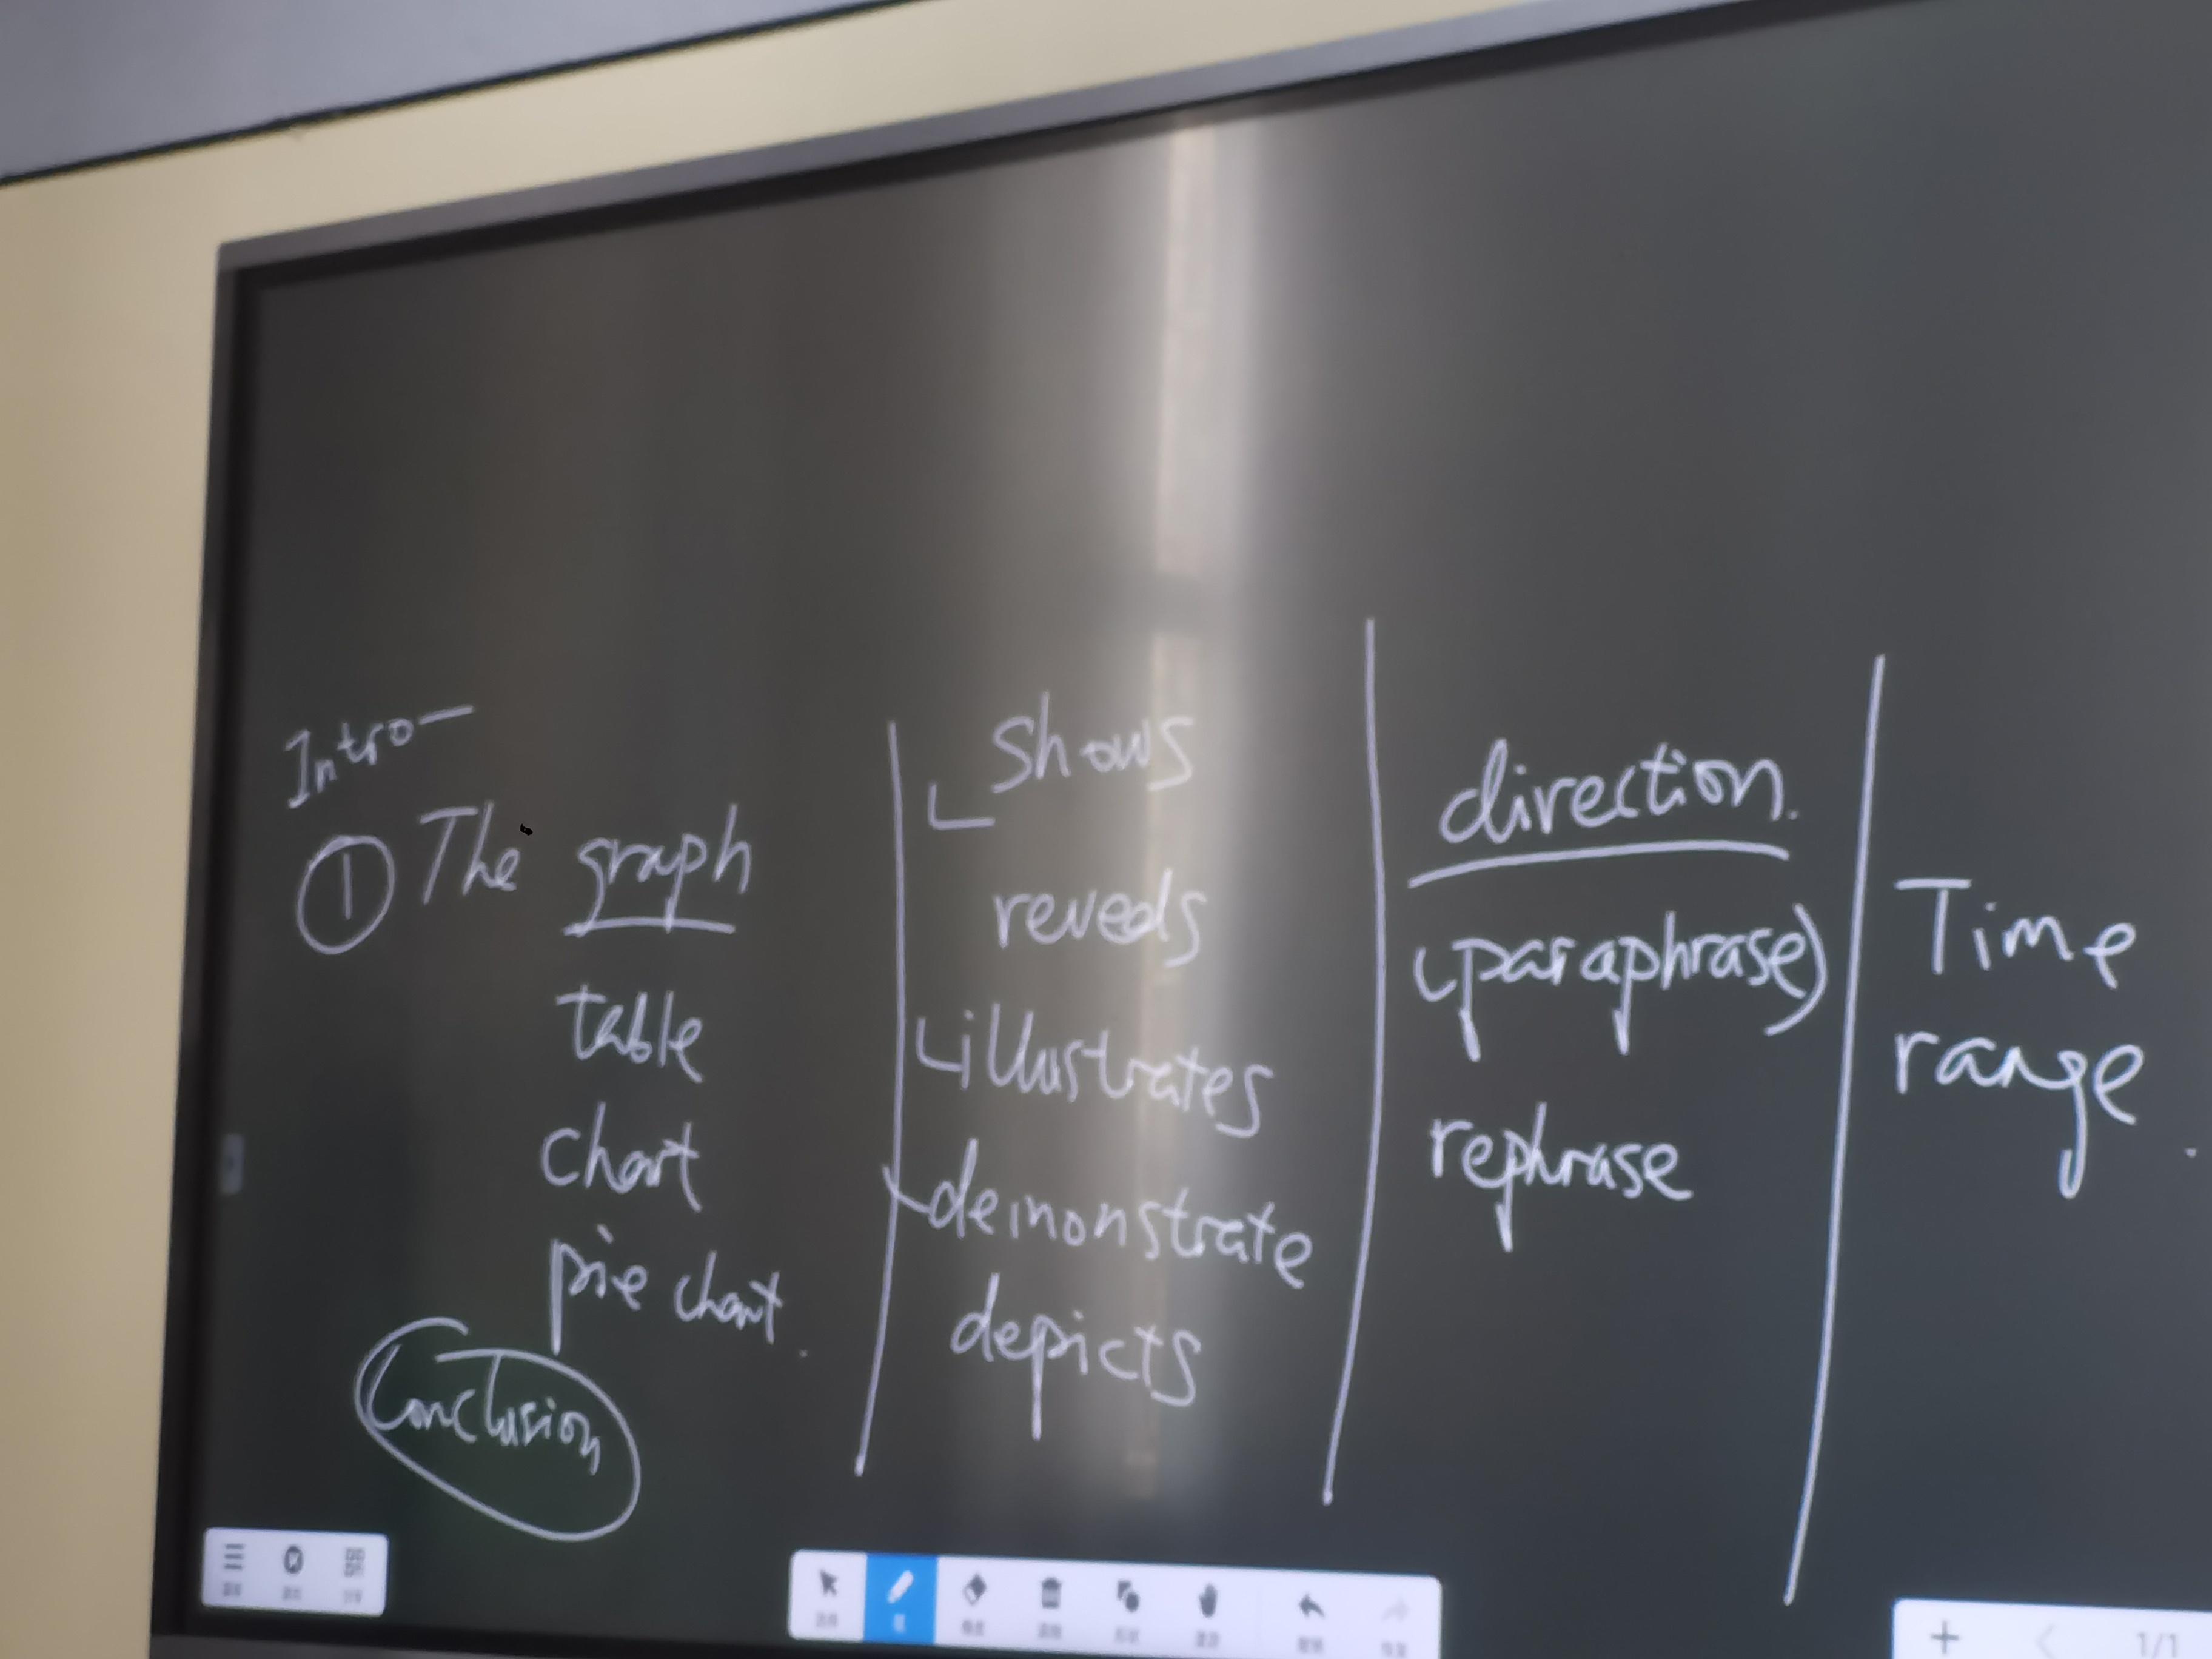 Intro—
① The graph
table
chart
pie chart.
Conclusion
Shows
reveals
illustrates
demonstrate
depicts
direction.
(paraphrase)
rephrase
Time
range
1/1